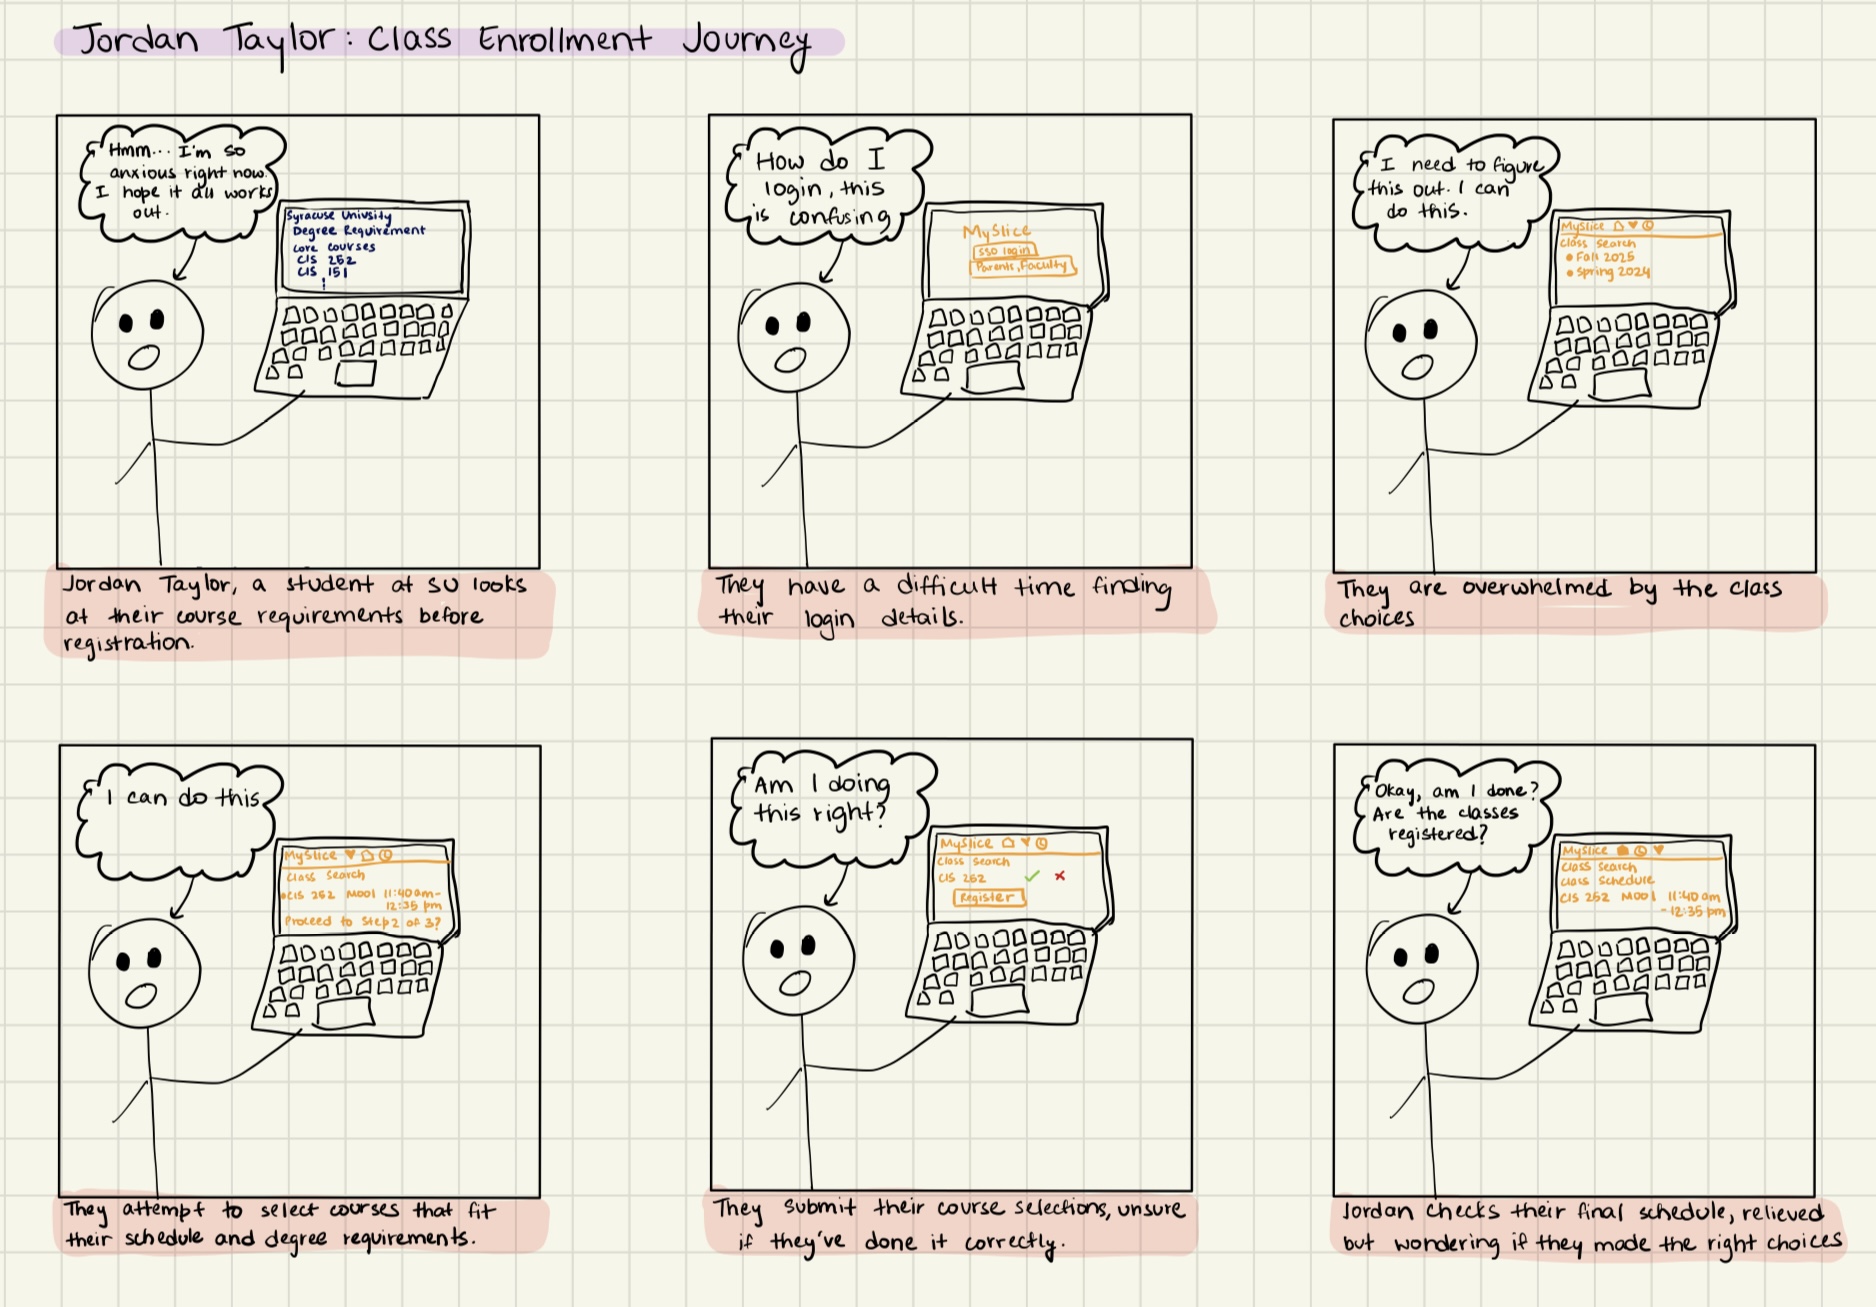 Jordan Taylor: Class Enrollment Journey
Hmm... I'm so
anxious right now.
I hope it all works
out.
Syracuse Univsity
Degree Requirement
Core courses
CIS 252
CIS 151
Jordan Taylor, a student at SU looks
at their course requirements before
registration.
How do I
login, this
is confusing
MySlice
SSO login
Parents, Faculty
They have a difficult time finding
their login details.
I need to figure
this out. I can
do this.
MySlice
Class Search
• Fall 2025
• Spring 2024
They are overwhelmed by the class
choices
I can do this
MySlice
Class Search
•CIS 252 M001 11:40am-
12:35 pm
Proceed to Step 2 of 3?
They attempt to select courses that fit
their schedule and degree requirements.
Am I doing
this right?
MySlice
Class Search
CIS 252 ✓ x
Register
They submit their course selections, unsure
if they've done it correctly.
Okay, am I done?
Are the classes
registered?
MySlice
Class Search
Class Schedule
CIS 252 M001 11:40 am
-12:35 pm
Jordan checks their final schedule, relieved
but wondering if they made the right choices